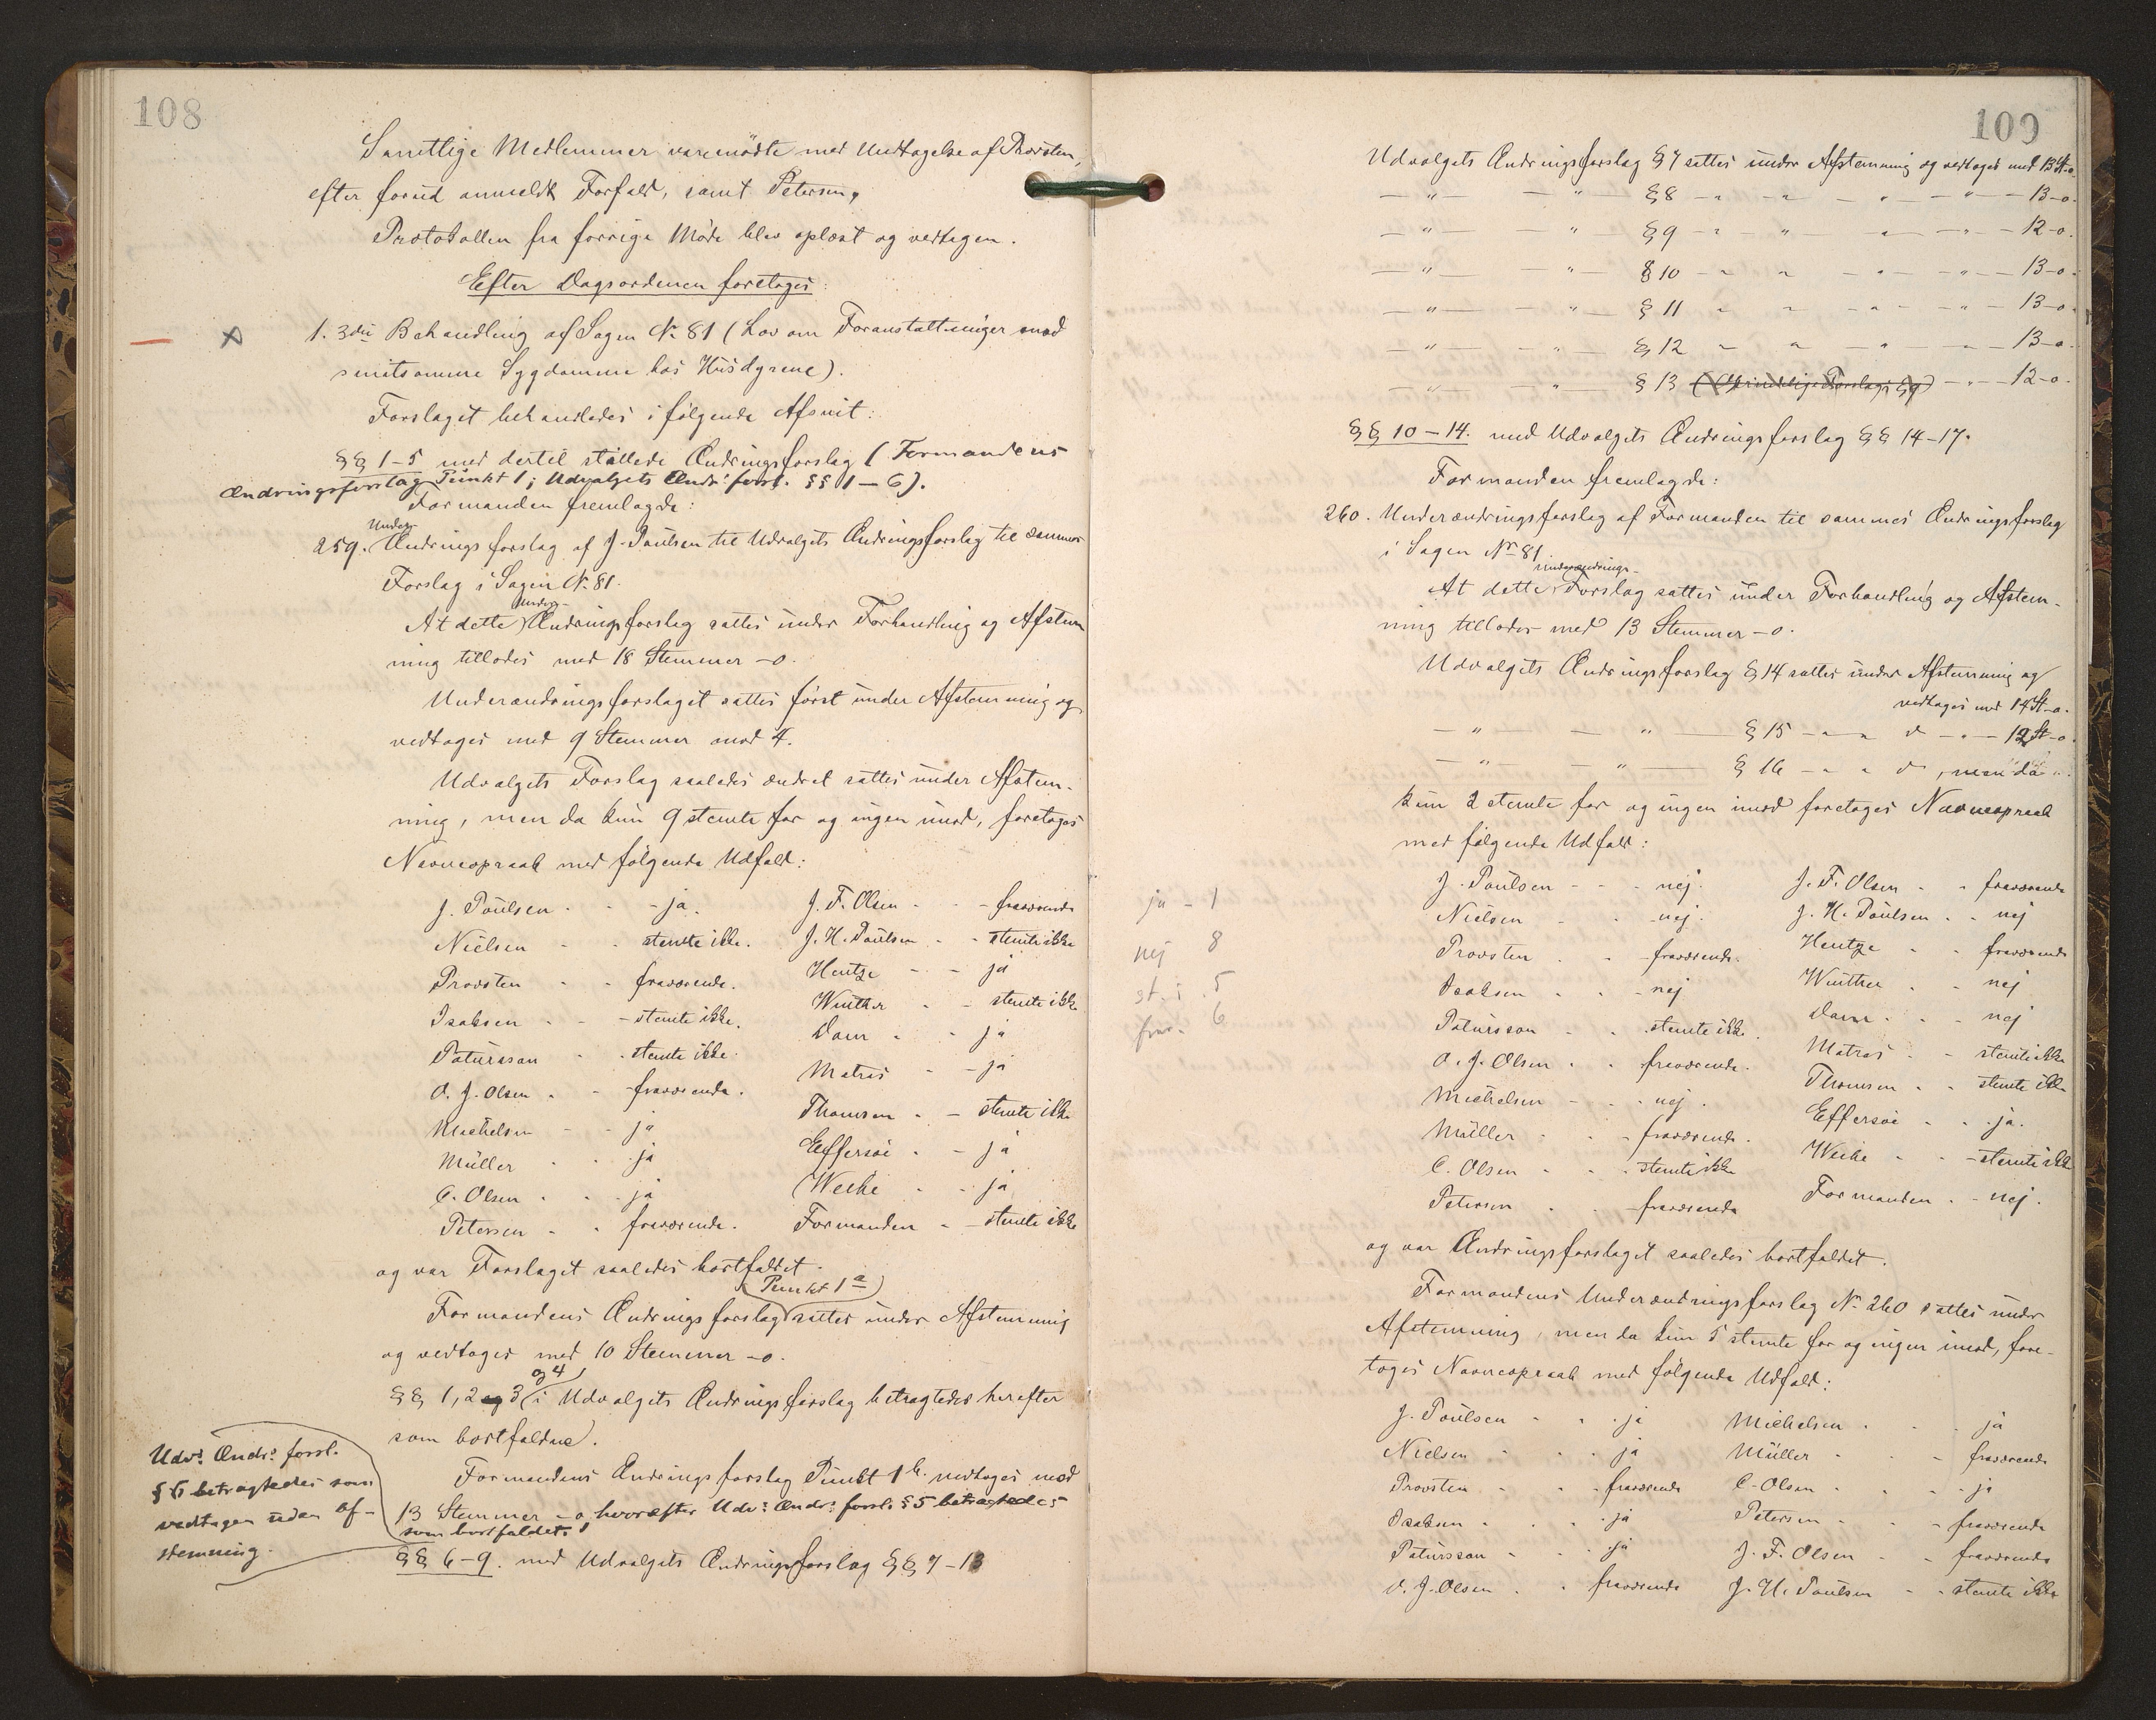 108
Samtlige Medlemmer varemødte med Undtagelse af Provsten,
efter forud anmeldt Forfald, samt Petersen.
Protokollen fra forrige Møde blev oplæst og vedtagen.
Efter Dagsordenen foretoges:
1. 3die Behandling af Sagen No 81 (Lov om Foranstaltninger mod
smitsomme Sygdomme hos Husdyrene).
Forslaget behandledes i følgende Afsnit:
§§ 1-5 med dertil stillede Ændringsforslag (Formandens
Ændringsforslag Punkt 1; Udvalgets Ændr. forsl. §§ 1-6).
Formanden fremlagde:
Under-
259. Ændringsforslag af J. Poulsen til Udvalgets Ændringsforslag til sammes
Forslag i Sagen No 81.
Under-
At dette Ændringsforslag sattes under Forhandling og Afstem
ning tillodes med 18 Stemmer -0.
Underændringsforslaget sattes først under Afstemning og
vedtoges med 9 Stemmer mod 4.
Udvalgets Forslag saaledes ændret sattes under Afstem-
ning, men da kun 9 stemte for og ingen imod, foretoges
Navneopraab med følgende Udfald:
J. Poulsen - - ja. J. F. Olsen - - fraværende
Nielsen - - stemte ikke. J. H. Poulsen - - stemte ikke
Provsten - - fraværende. Hentze - - ja
Isaksen - - stemte ikke. Winther - - stemte ikke
Patursson - - stemte ikke. Dam - - ja
O. J. Olsen - - fraværende. Matras - - ja
Michelsen - - ja Thomsen - - stemte ikke
Müller - - ja Effersöe - - ja
C. Olsen - - ja Weihe - - ja
Petersen - - fraværende. Formanden - - stemte ikke
og var Forslaget saaledes bortfaldet.
Punkt 1 a
Formandens Ændringsforslag sattes under Afstemning
og vedtoges med 10 Stemmer -0.
og 4
§§ 1, 2 og 3 i Udvalgets Ændringsforslag betragtedes herefter
som bortfaldne.
Formandens Ændringsforslag Punkt 1 b. vedtoges med
13 Stemmer -0, hvorefter Udv: Ændr: forsl. § 5 betragtedes
som bortfaldet.
Udv: Ændr: forsl.
§ 6 betragtedes som
vedtagen uden Af-
stemning.
§§ 6-9. med Udvalgets Ændringsforslag §§ 7-13
109
Udvalgets Ændringsforslag § 7 sattes under Afstemning og vedtoges med 13 St-0.
- " - - " - § 8 - " - " - " - " - 13-0.
- " - " - § 9 - " - " - " - " - 12-0.
- " - - " - § 10 - " - " - " - " - 13-0.
- " - - " - § 11 " " - " - " - 13-0.
- " - - " - § 12 - " - " - " - 13-0.
- " - " - § 13 (Oprindelige Forslags § 9) - " - 12-0.
§§ 10-14. med Udvalgets Ændringsforslag §§ 14-17.
Formanden fremlagde:
260. Underændringsforslag af Formanden til sammes Ændringsforslag
i Sagen No 81.
Underændrings-
At dette Forslag sattes under Forhandling og Afstem-
ning tillodes med 13 Stemmer -0.
Udvalgets Ændringsforslag § 14 sattes under Afstemning og
vedtoges med 14 St-0.
- " - - " - § 15 - " - " - 12 St-0.
- " - - " - § 16 - " - " , men da
kun 2 stemte for og ingen imod foretoges Navneopraab
med følgende Udfald:
ja - 1
nej 8
st. i. 5
frav. 6
J. Poulsen - - nej. J. F. Olsen - - fraværende
Nielsen - - nej. J. H. Poulsen - - nej
Provsten - - fraværende. Hentze - - fraværende
Isaksen - - nej Winther - - nej
Patursson - - stemte ikke. Dam - - nej
O. J. Olsen - - fraværende. Matras - - stemte ikke
Michelsen - - nej. Thomsen - - stemte ikke
Müller - - fraværende. Effersöe - - ja.
C. Olsen - - stemte ikke Weihe - - stemte ikke
Petersen - - fraværende Formanden - - nej.
og var Ændringsforslaget saaledes bortfaldet.
Formandens Underændringsforslag No 260 sattes under
Afstemning, men da kun 5 stemte for og ingen imod, fore-
toges Navneopraab med følgende Udfald:
J. Poulsen - - ja Michelsen - - ja
Nielsen - - ja Müller - - fraværende
Provsten - - fraværende C. Olsen - - ja
Isaksen - - ja Petersen - - fraværende
Patursson - - ja J. F. Olsen - - fraværende
O. J. Olsen - - fraværende J. H. Poulsen - - stemte ikke